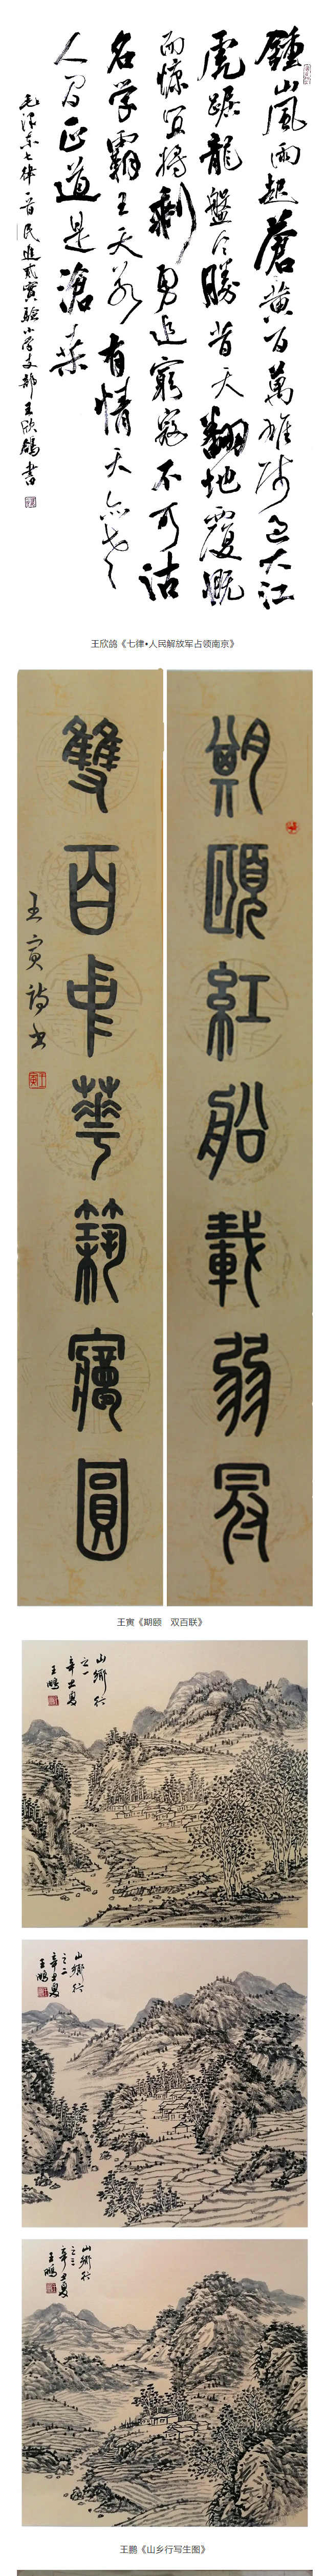 鍾山風雨起蒼黃百萬雄师过大江
虎踞龍盤今勝昔天翻地覆慨
而慷宜將剩勇追窮寇不可沽
名学霸王天若有情天亦老
人间正道是滄桑
毛泽东七律一首民進貳實驗小学支部王欣鴿书
王欣鸽《七律•人民解放军占领南京》
期頤紅船載弱冠
雙百中華筑夢圓
王寅
王寅《期颐 双百联》
山鄉行
之一
辛丑夏
王鵬
山鄉行
之二
辛丑夏
王鵬
山鄉行
之三
辛丑夏
王鵬
王鹏《山乡行写生图》